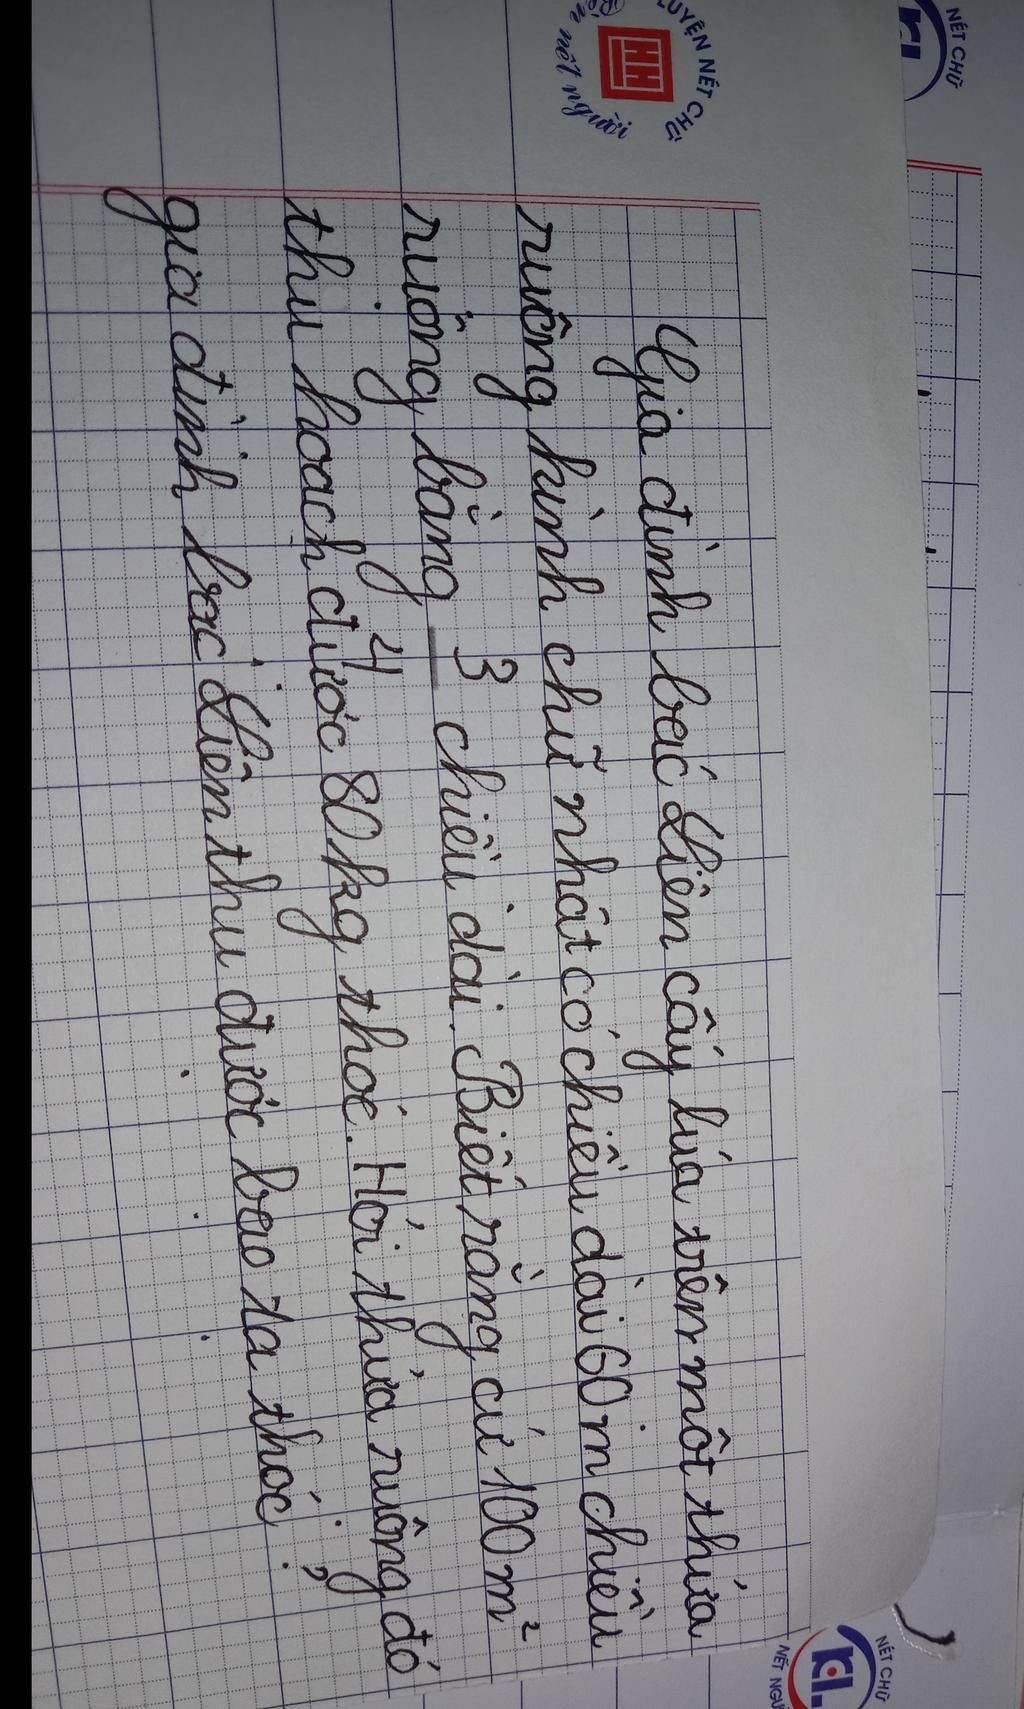 LUYỆN NÉT CHỮ
Rèn nết người
NÉT CHỮ
Gia đình bác Liên cấy lúa trên một thửa
ruộng hình chữ nhật có chiều dài 60m chiều
rộng bằng 3/4 chiều dài. Biết rằng cứ 100m²
thu hoạch được 80kg thóc. Hỏi thửa ruộng đó
gia đình bác Liên thu được bao tạ thóc?
NÉT CHỮ
NẾT NGƯỜI